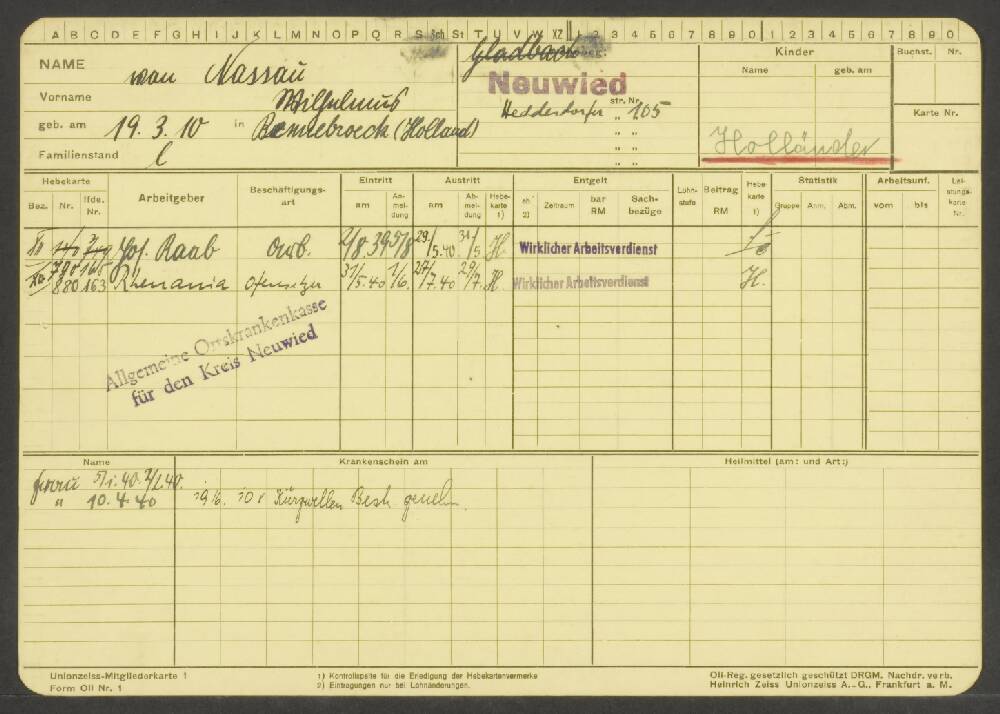 A B C D E F G H I J K L M N O P Q R S Sch St T U V W XZ 1 2 3 4 5 6 7 8 9 0 1 2 3 4 5 6 7 8 9 0
NAME van Nassau
Vorname Wilhelmus
geb. am 19.3.10 in Bennebroeck (Holland)
Familienstand l
Gladbach
Neuwied
Heddesdorfer str. Nr. 105
" "
" "
" "
Kinder
Name geb. am
Holländer
Buchst. Nr.
Karte Nr.
Hebekarte Arbeitgeber Beschäftigungsart Eintritt Austritt Entgelt Lohnstufe Beitrag RM Hebekarte 1) Statistik Arbeitsunf. Leistungskarte Nr.
Bez. Nr. lfde. Nr. am Anmeldung am Abmeldung Hebekarte 1) ab 2) Zeitraum bar RM Sachbezüge Gruppe Anm. Abm. vom bis
Jos. Raab 2/8.39 5/8 29/5.40 31/5 H. Wirklicher Arbeitsverdienst
880 163 Rhenania Ofensetzer 31/5.40 1/6. 27/7.40 29/7. H. Wirklicher Arbeitsverdienst H.
Allgemeine Ortskrankenkasse
für den Kreis Neuwied
Name Krankenschein am Heilmittel (am: und Art:)
Frau 5/1.40.
" 10.4.40 19/6. 10 x Kurzwellen Bestr. genehm.
Unionzeiss-Mitgliederkarte 1
Form OII Nr. 1
1) Kontrollspalte für die Erledigung der Hebekartenvermerke
2) Eintragungen nur bei Lohnänderungen.
OII-Reg. gesetzlich geschützt DRGM. Nachdr. verb.
Heinrich Zeiss Unionzeiss A.-G., Frankfurt a. M.